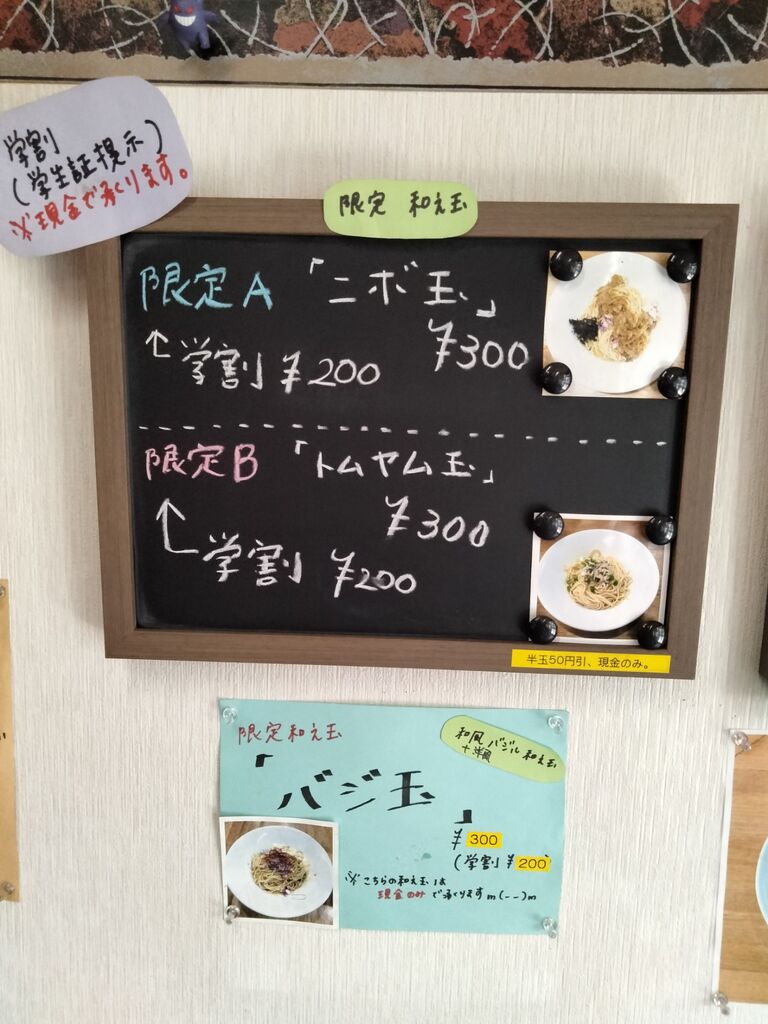 学割
(学生証提示)
※現金で承ります。
限定 和え玉
限定A 「ニボ玉」
¥300
↑学割 ¥200
限定B 「トムヤム玉」
¥300
↑学割 ¥200
半玉50円引、現金のみ。
限定和え玉
和風バジル和え玉
+洋風
「バジ玉」
¥300
(学割¥200
※こちらの和え玉は
現金のみで承ります m(--)m